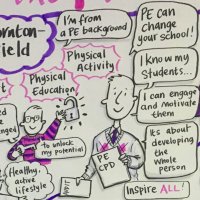 I'm from
a PE background
PE can
change
your school!
Physical
Activity
I know my
students...
Physical
Education
I can engage
and motivate
them
to unlock
my potential
PE
CPD
It's about
developing
the
whole
person
Healthy,
active
lifestyle
Inspire ALL!